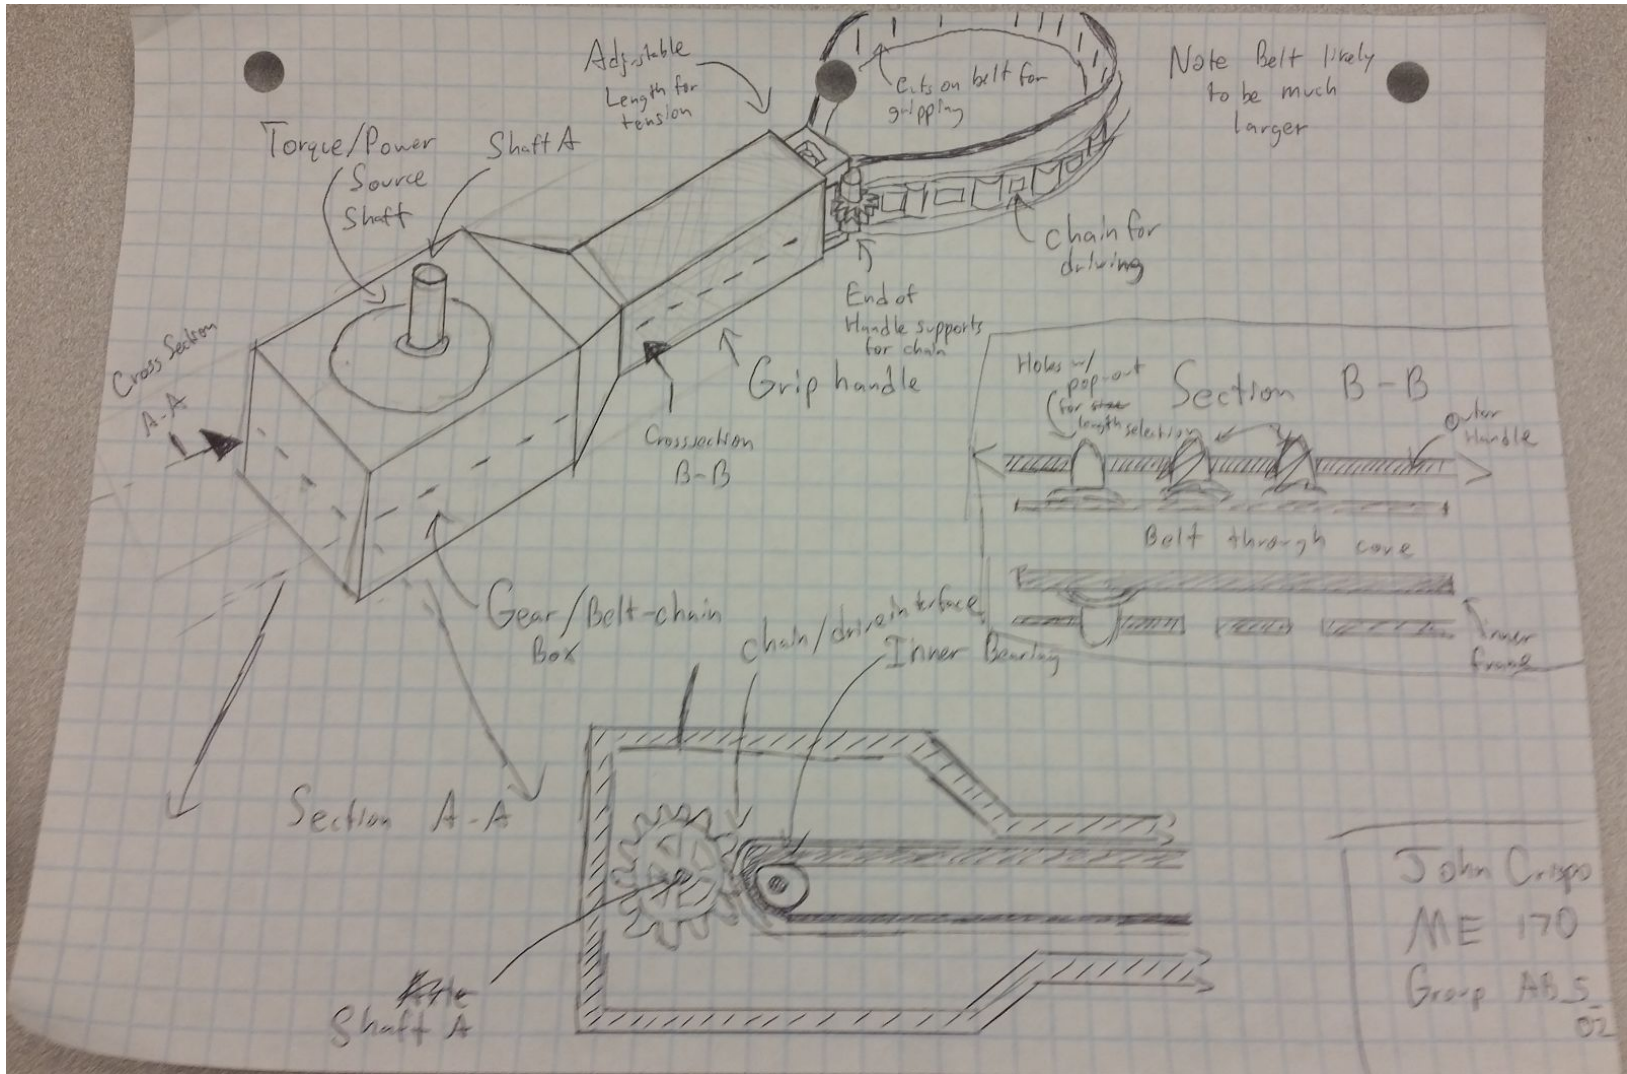 Adjustable
Length for
tension
Cuts on belt for
gripping
Note Belt likely
to be much
larger
Torque/Power
Source
Shaft
Shaft A
chain for
driving
End of
Handle supports
for chain
Grip handle
Cross Section
A-A
Crosssection
B-B
Holes w/
pop-out
for
length selection
Section B-B
Outer
Handle
Belt through core
inner
frame
Gear/Belt-chain
Box
chain/drive interface
Inner Bearing
Section A-A
Shaft A
John Crispo
ME 170
Group AB5_
02